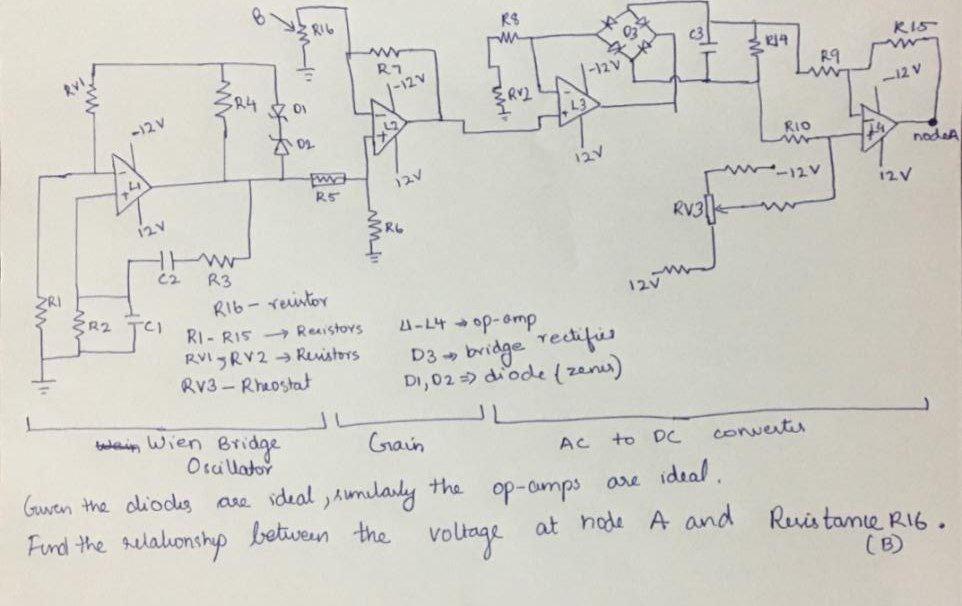 B
R16
R8
D3
C3
R14
R15
R9
-12V
R7
-12V
RV1
R4
D1
RV2
-12V
L3
-12V
D2
L2
L4
node A
R10
L1
12V
12V
12V
R5
-12V
RV3
12V
R6
C2
R3
12V
R1
R2
C1
R16 - resistor
R1 - R15 → Resistors
RV1, RV2 → Resistors
RV3 - Rheostat
L1-L4 → op-amp
D3 → bridge rectifier
D1, D2 => diode (zener)
Wien Bridge
Oscillator
Grain
AC to DC converter
Given the diodes are ideal, similarly the op-amps are ideal.
Find the relationship between the voltage at node A and Resistance R16.
(B)